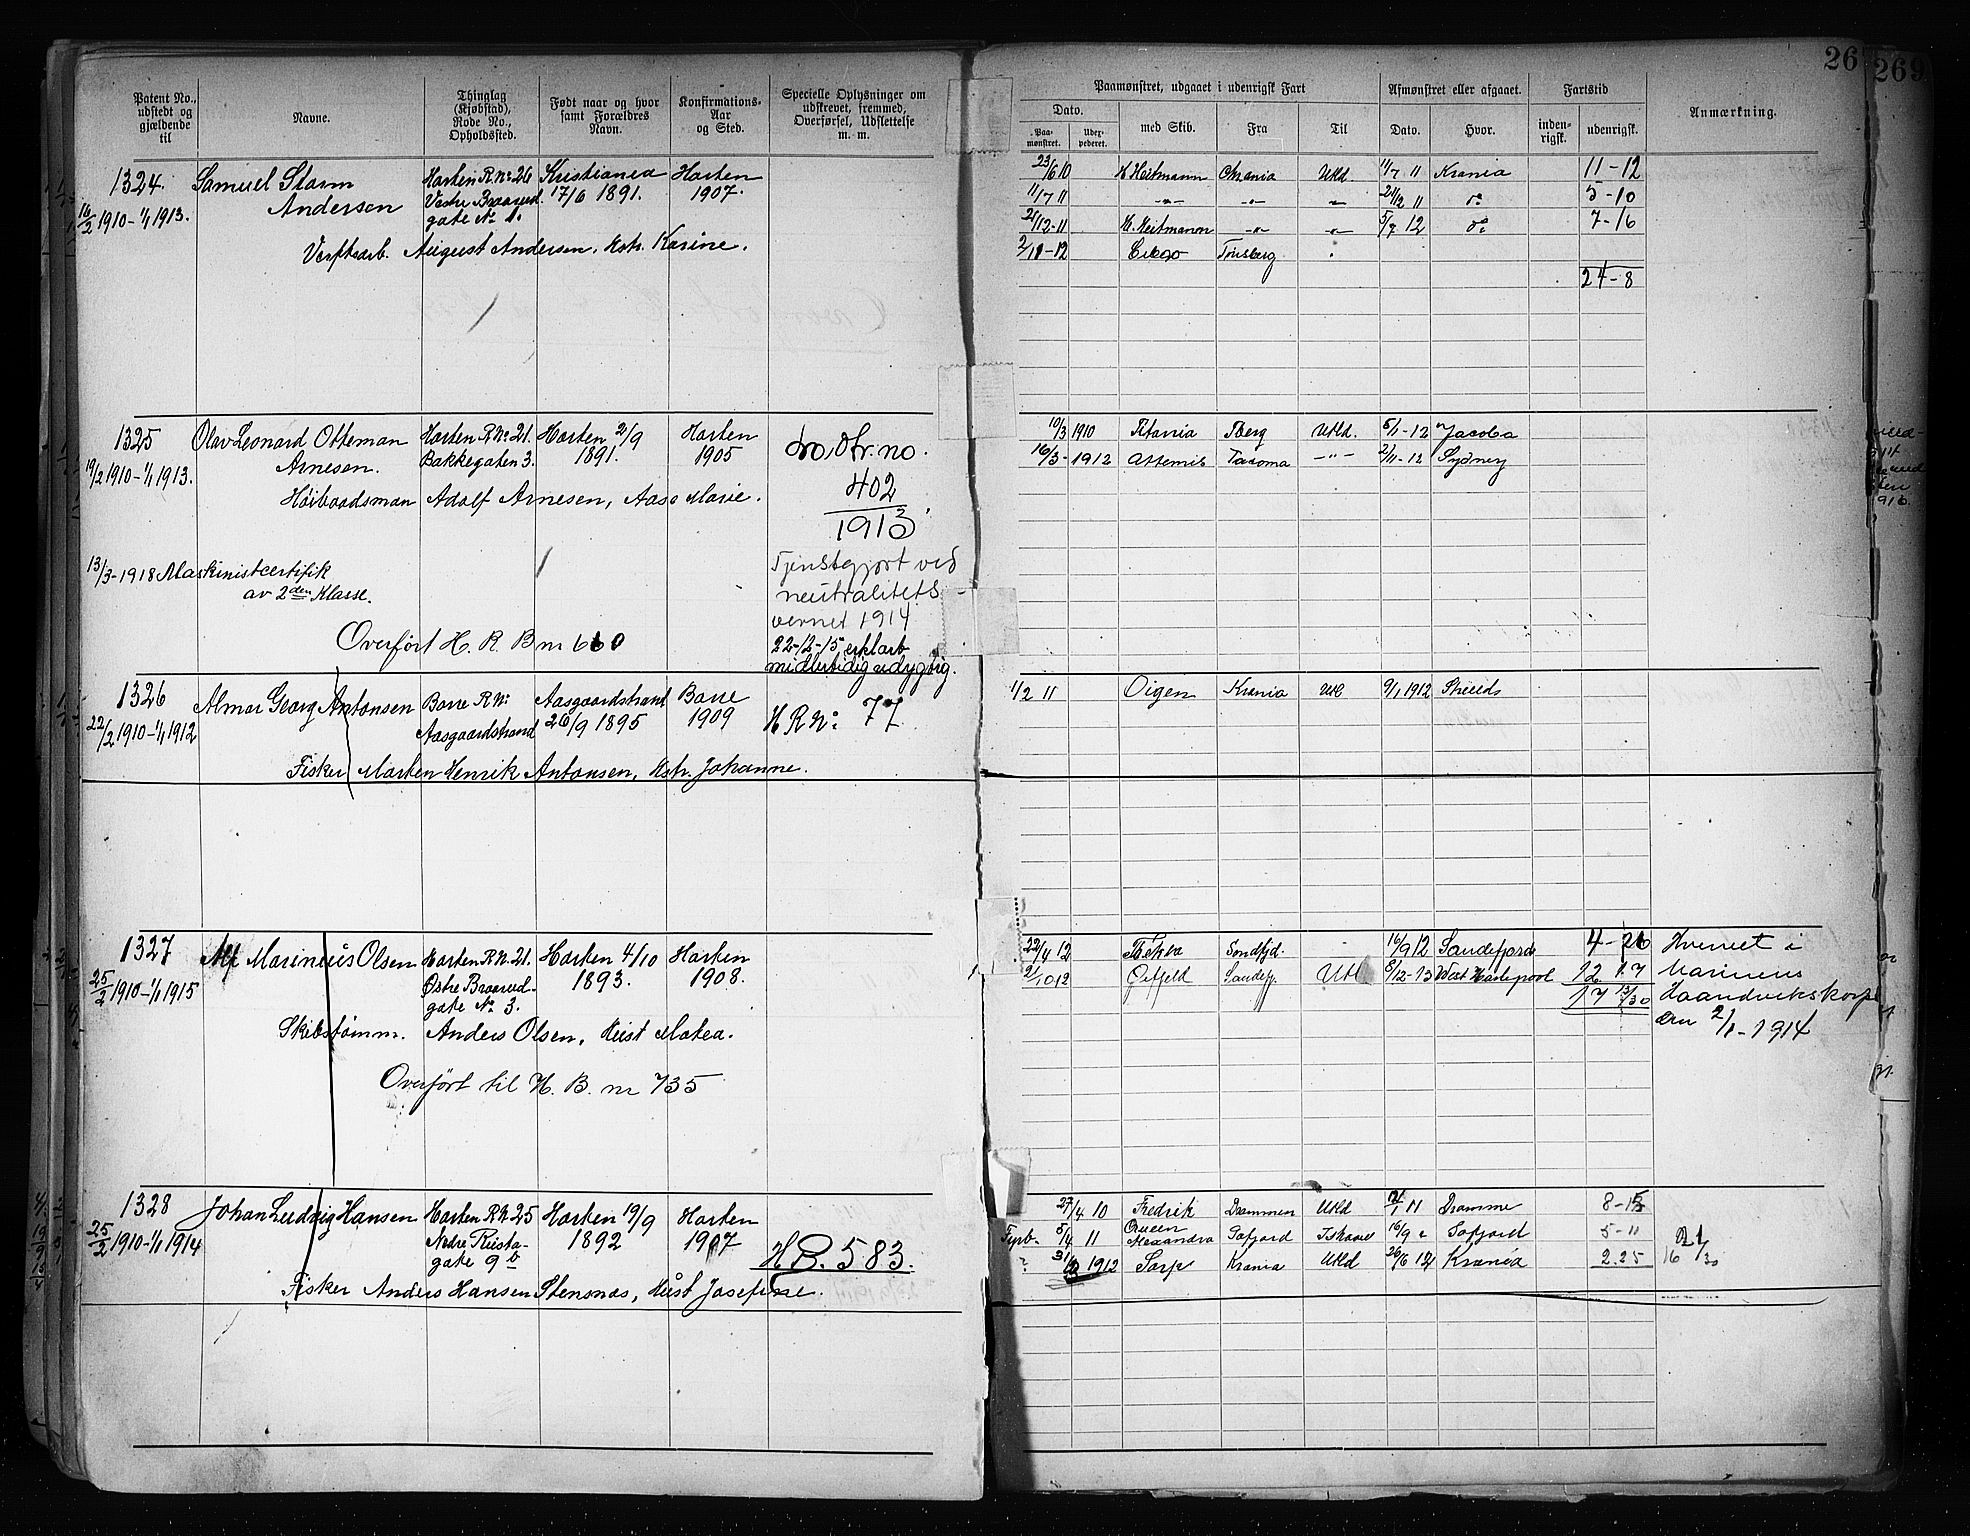 26 269
Patent No., udstedt og gjældende til
Navne.
Thinglag (Kjøbstad), Rode No., Opholdssted.
Født naar og hvor samt Forældres Navn.
Konfirmations-Aar og Sted.
Specielle Oplysninger om udskrevet, fremmed, Overførsel, Udslettelse m. m.
Paamønstret, udgaaet i udenrigsk Fart
Afmønstret eller afgaaet.
Fartstid
Anmærkning.
Dato.
Paa-mønstret.
Uder-pederet.
med Skib.
Fra
Til
Dato.
Hvor.
inden-rigsk.
udenrigsk.
1324. Samuel Storm Horten R. No 26 Kristiania Horten
16/2 1910 - 1/1 1913. Andersen Vestre Braarud- 17/6 1891. 1907.
gate No 1.
Verftsarb. August Andersen, Hstr. Karine.
23/6 10 H Heitmann Krania Utld. 11/7 11 Krania 11-12
11/7 11 -"- -"- 21/12 11 do 5-10
21/12-11 H. Heitmann -"- -"- 5/7 12 do 7-16
2/11-12 Tønsberg
24-8
1325 Olav Leonard Otteman Horten R No 21. Horten 2/9 Horten
19/2 1910 - 1/1 1913. Arnesen. Bakkegaten 3. 1891. 1905
Høibaadsman Adolf Arnesen, Aase Marie.
402
1913
13/3-1918 Maskinistcertifik
av 2den Klasse.
Tjenstgjort ved
neutralitets
vernet 1914
Overført H. R. B nr 660
22-12-15 erklært
midlertidig udygtig.
10/3 1910 Titania Tberg Utld. 5/1-12 Jacoba
16/3-1912 Artemis Tacoma -"- 2/11-12 Sydney
1326 Almar Georg Antonsen Borre R No Aasgaardstrand Borre
22/2 1910 - 1/1 1912 Aasgaardstrand 26/9 1895 1909
H R No: 77
Fisker Morten Henrik Antonsen, Hstr. Johanne.
1/2 11 Oigen Krania Utl 9/1 1912 Shields
1327 Alf Marinius Olsen Horten R. No 21. Horten 4/10 Horten
25/2 1910 - 1/1 1915 Østre Braarud- 1893. 1908.
gate No 3.
Skibstømm. Anders Olsen, Hust Matea.
Overført til H. B. nr 735
22/4 12 Thekla Sandfjd. 16/9 12 Sandefjord 4-26
2/10 12 Sandefj. Utl 6/12-13 West Hartlepool 12 17
17 13/30
Hvervet i
Marinens
Haandverkskorps
den 2/1-1914
1328 Johan Ludvig Hansen Horten R. No 25 Horten 19/9 Horten
25/2 1910 - 1/1 1914 Nedre Keista- 1892 1907
gate 9 b
H B. 583.
Fisker Anders Hansen Stensnæs, Hust Josefine.
27/4 10 Fredrik Drammen Utld 11 Dramme 8-15
Fyrb. 5/4 11 Queen Alexandra Ishavet 16/9 5-11
1912 Sarp Krania Utld 26/6 12 Krania 2.25
16 21/30